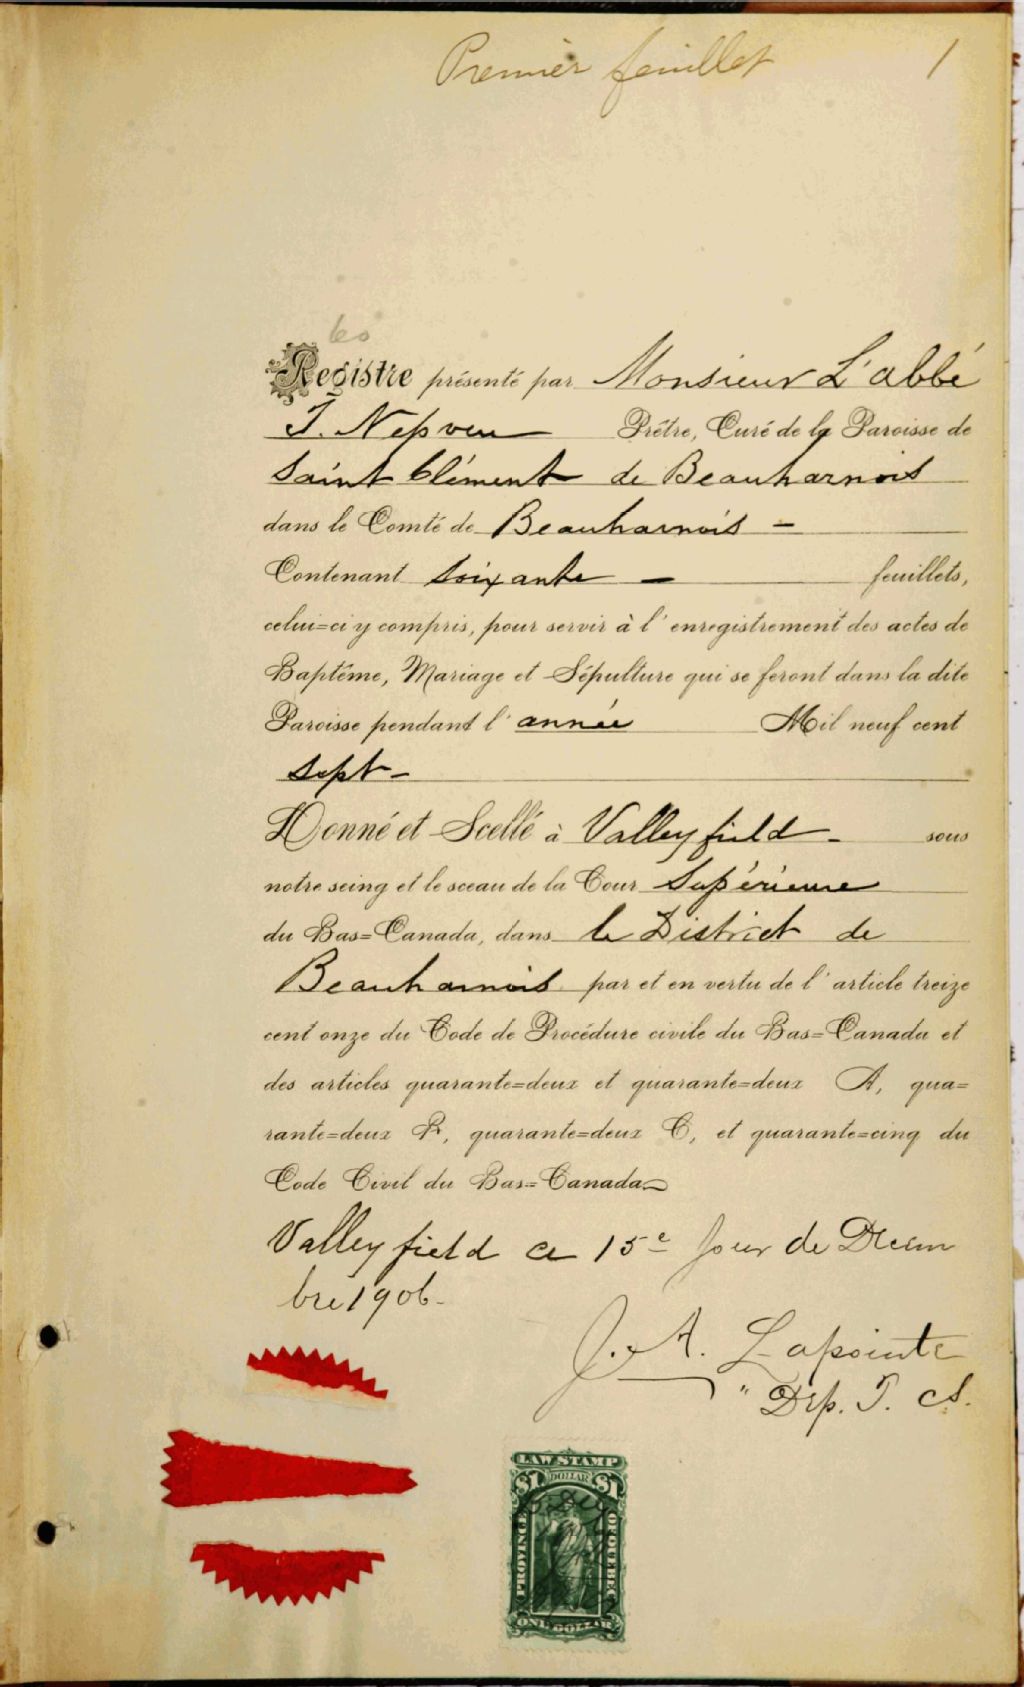 Premier feuillet 1
60
Registre présenté par Monsieur L'abbé
J. Nepveu Prêtre, Curé de la Paroisse de
Saint Clément de Beauharnois
dans le Comté de Beauharnois -
Contenant soixante - feuillets,
celui=ci y compris, pour servir à l'enregistrement des actes de
Baptême, Mariage et Sépulture qui se feront dans la dite
Paroisse pendant l'année Mil neuf cent
sept -
Donné et Scellé à Valleyfield - sous
notre seing et le sceau de la Cour Supérieure
du Bas=Canada, dans le District de
Beauharnois par et en vertu de l'article treize
cent onze du Code de Procédure civile du Bas=Canada et
des articles quarante=deux et quarante=deux A, qua=
rante=deux B, quarante=deux C, et quarante=cinq du
Code Civil du Bas=Canada
Valleyfield ce 15e jour de Décem
bre 1906 -
J. A. Lapointe
" Dép. P. C. S.
LAW STAMP
$1 DOLLAR $1
PROVINCE OF QUEBEC
ONE DOLLAR